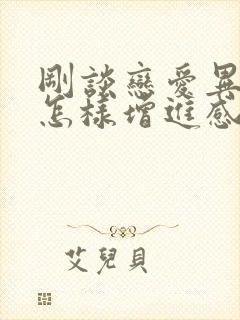 剛談戀愛異
怎樣增進感
艾兒貝